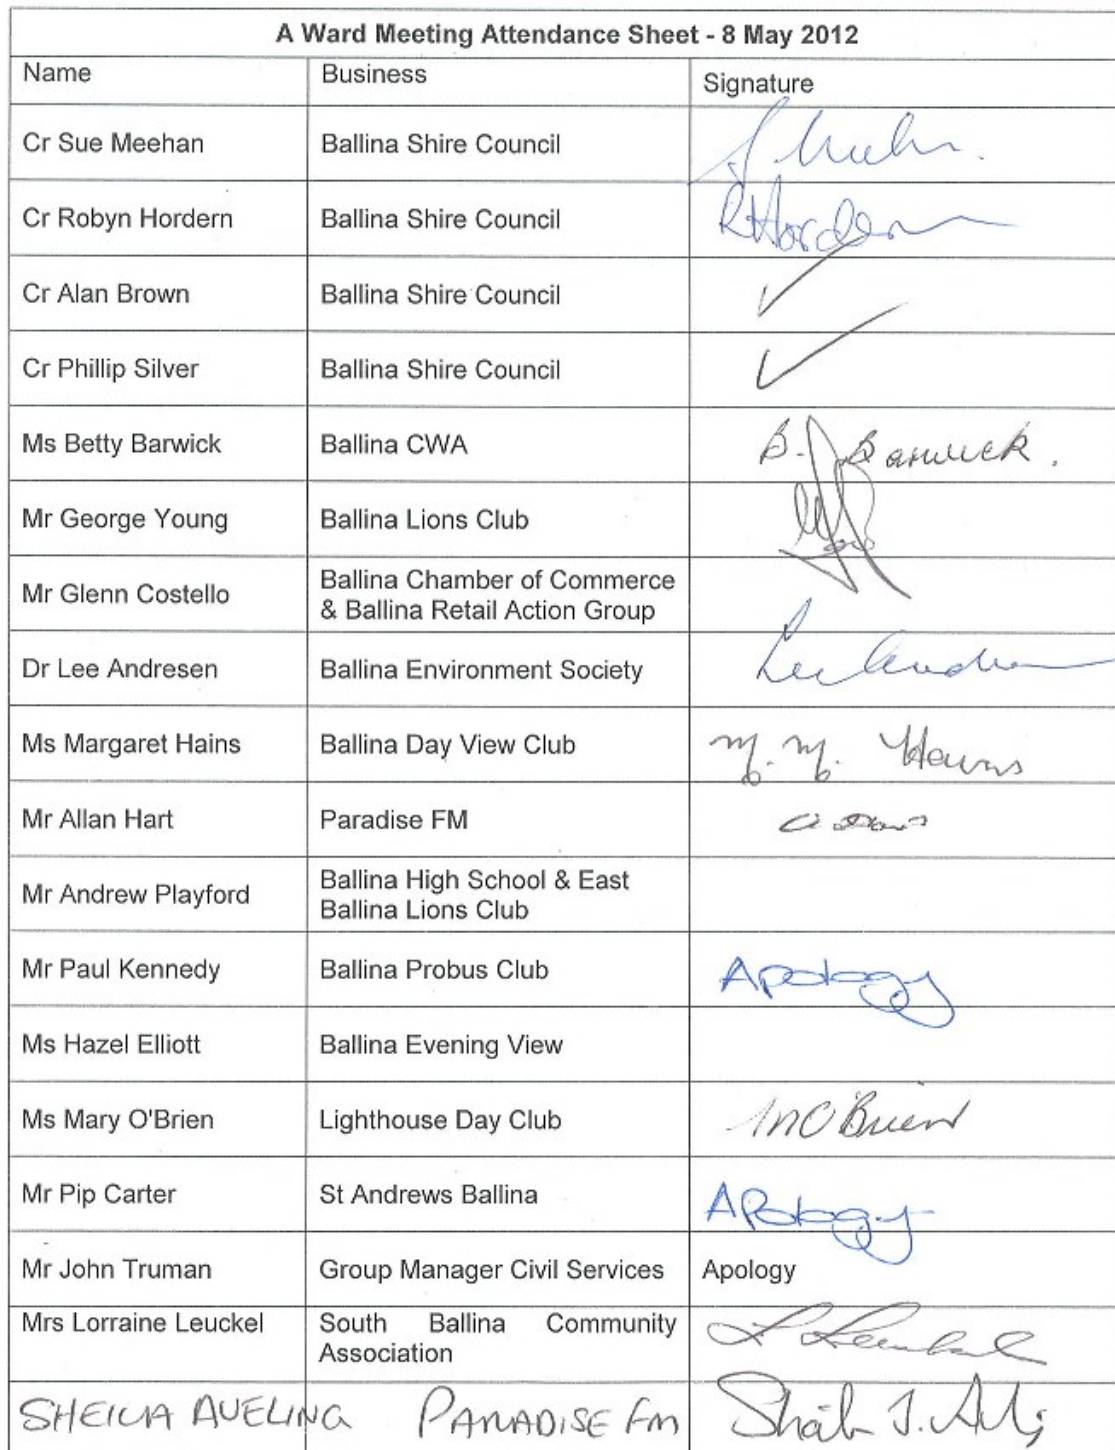 A Ward Meeting Attendance Sheet - 8 May 2012
Name Business Signature
Cr Sue Meehan Ballina Shire Council
Cr Robyn Hordern Ballina Shire Council RHordern
Cr Alan Brown Ballina Shire Council ✓
Cr Phillip Silver Ballina Shire Council ✓
Ms Betty Barwick Ballina CWA B. Barwick.
Mr George Young Ballina Lions Club
Mr Glenn Costello Ballina Chamber of Commerce
& Ballina Retail Action Group
Dr Lee Andresen Ballina Environment Society Lee
Ms Margaret Hains Ballina Day View Club M. M. Hains
Mr Allan Hart Paradise FM
Mr Andrew Playford Ballina High School & East
Ballina Lions Club
Mr Paul Kennedy Ballina Probus Club Apology
Ms Hazel Elliott Ballina Evening View
Ms Mary O'Brien Lighthouse Day Club M O'Brien
Mr Pip Carter St Andrews Ballina Apology
Mr John Truman Group Manager Civil Services Apology
Mrs Lorraine Leuckel South Ballina Community
Association
SHEILA AVELING PARADISE FM